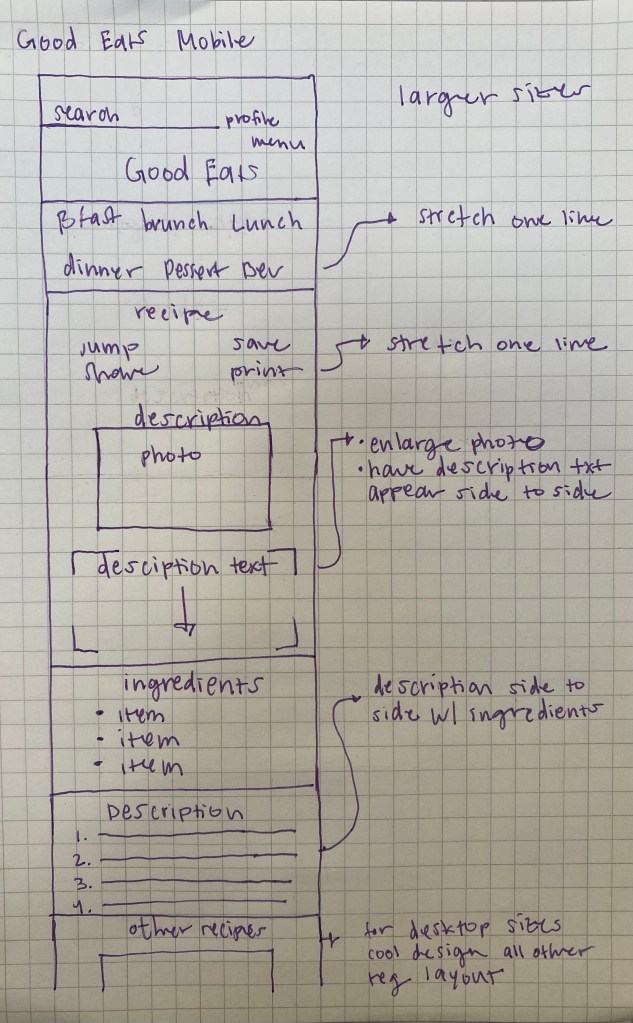 Good Eats Mobile
larger sizes
search
profile
menu
Good Eats
Bfast brunch Lunch
stretch one line
dinner Dessert Bev
recipe
jump save
stretch one line
share print
description
photo
• enlarge photo
• have description txt
appear side to side
desciption text
ingredients
• item
• item
• item
description side to
side w/ ingredients
Description
1.
2.
3.
4.
other recipes
for desktop sizes
cool design all other
reg layout